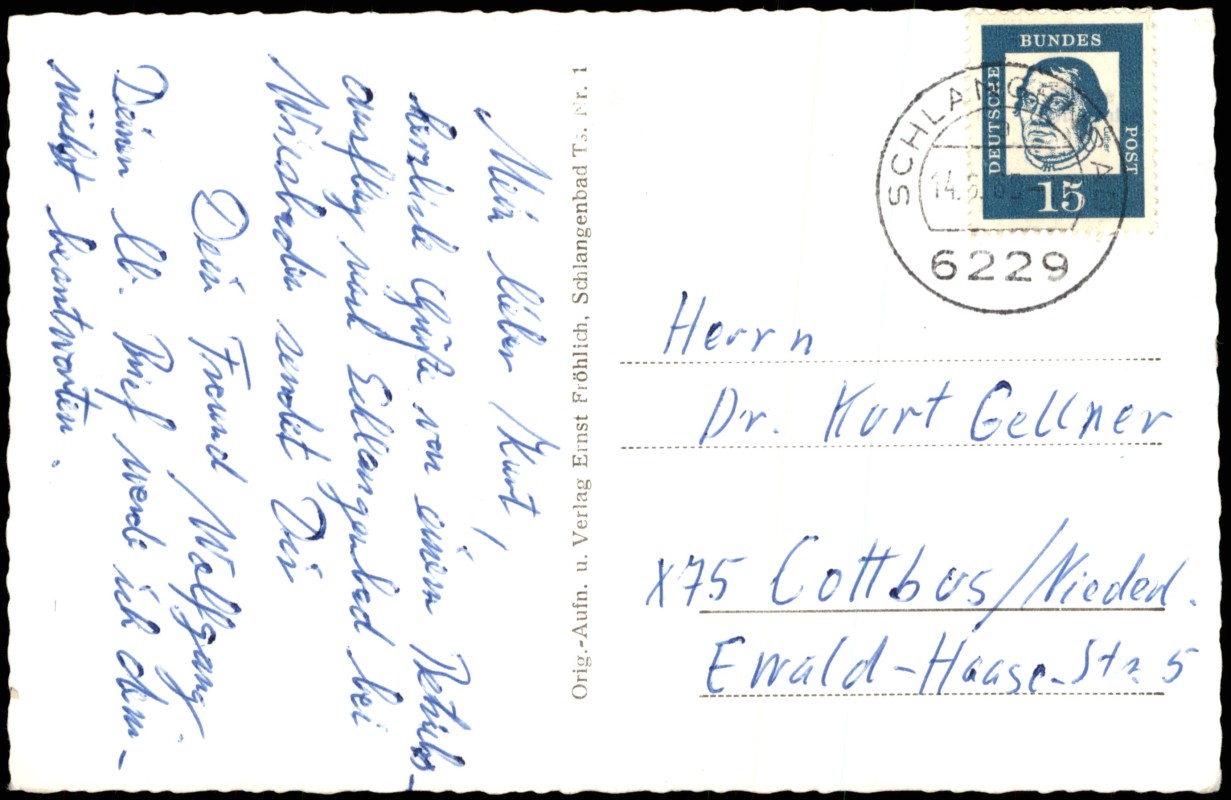 Mein lieber Kurt,
herzliche Grüße von einem Betriebs-
ausflug nach Schlangenbad bei
Wiesbaden sendet Dir
Dein Freund Wolfgang
Deinen lb. Brief werde ich dem-
nächst beantworten.
Orig.-Aufn. u. Verlag Ernst Fröhlich, Schlangenbad Ts. Nr. 1
DEUTSCHE
BUNDES
POST
Luther
15
SCHLANGENBAD
6229
Herrn
Dr. Kurt Gellner
X75 Cottbus/Niederl.
Ewald-Haase-Str. 5